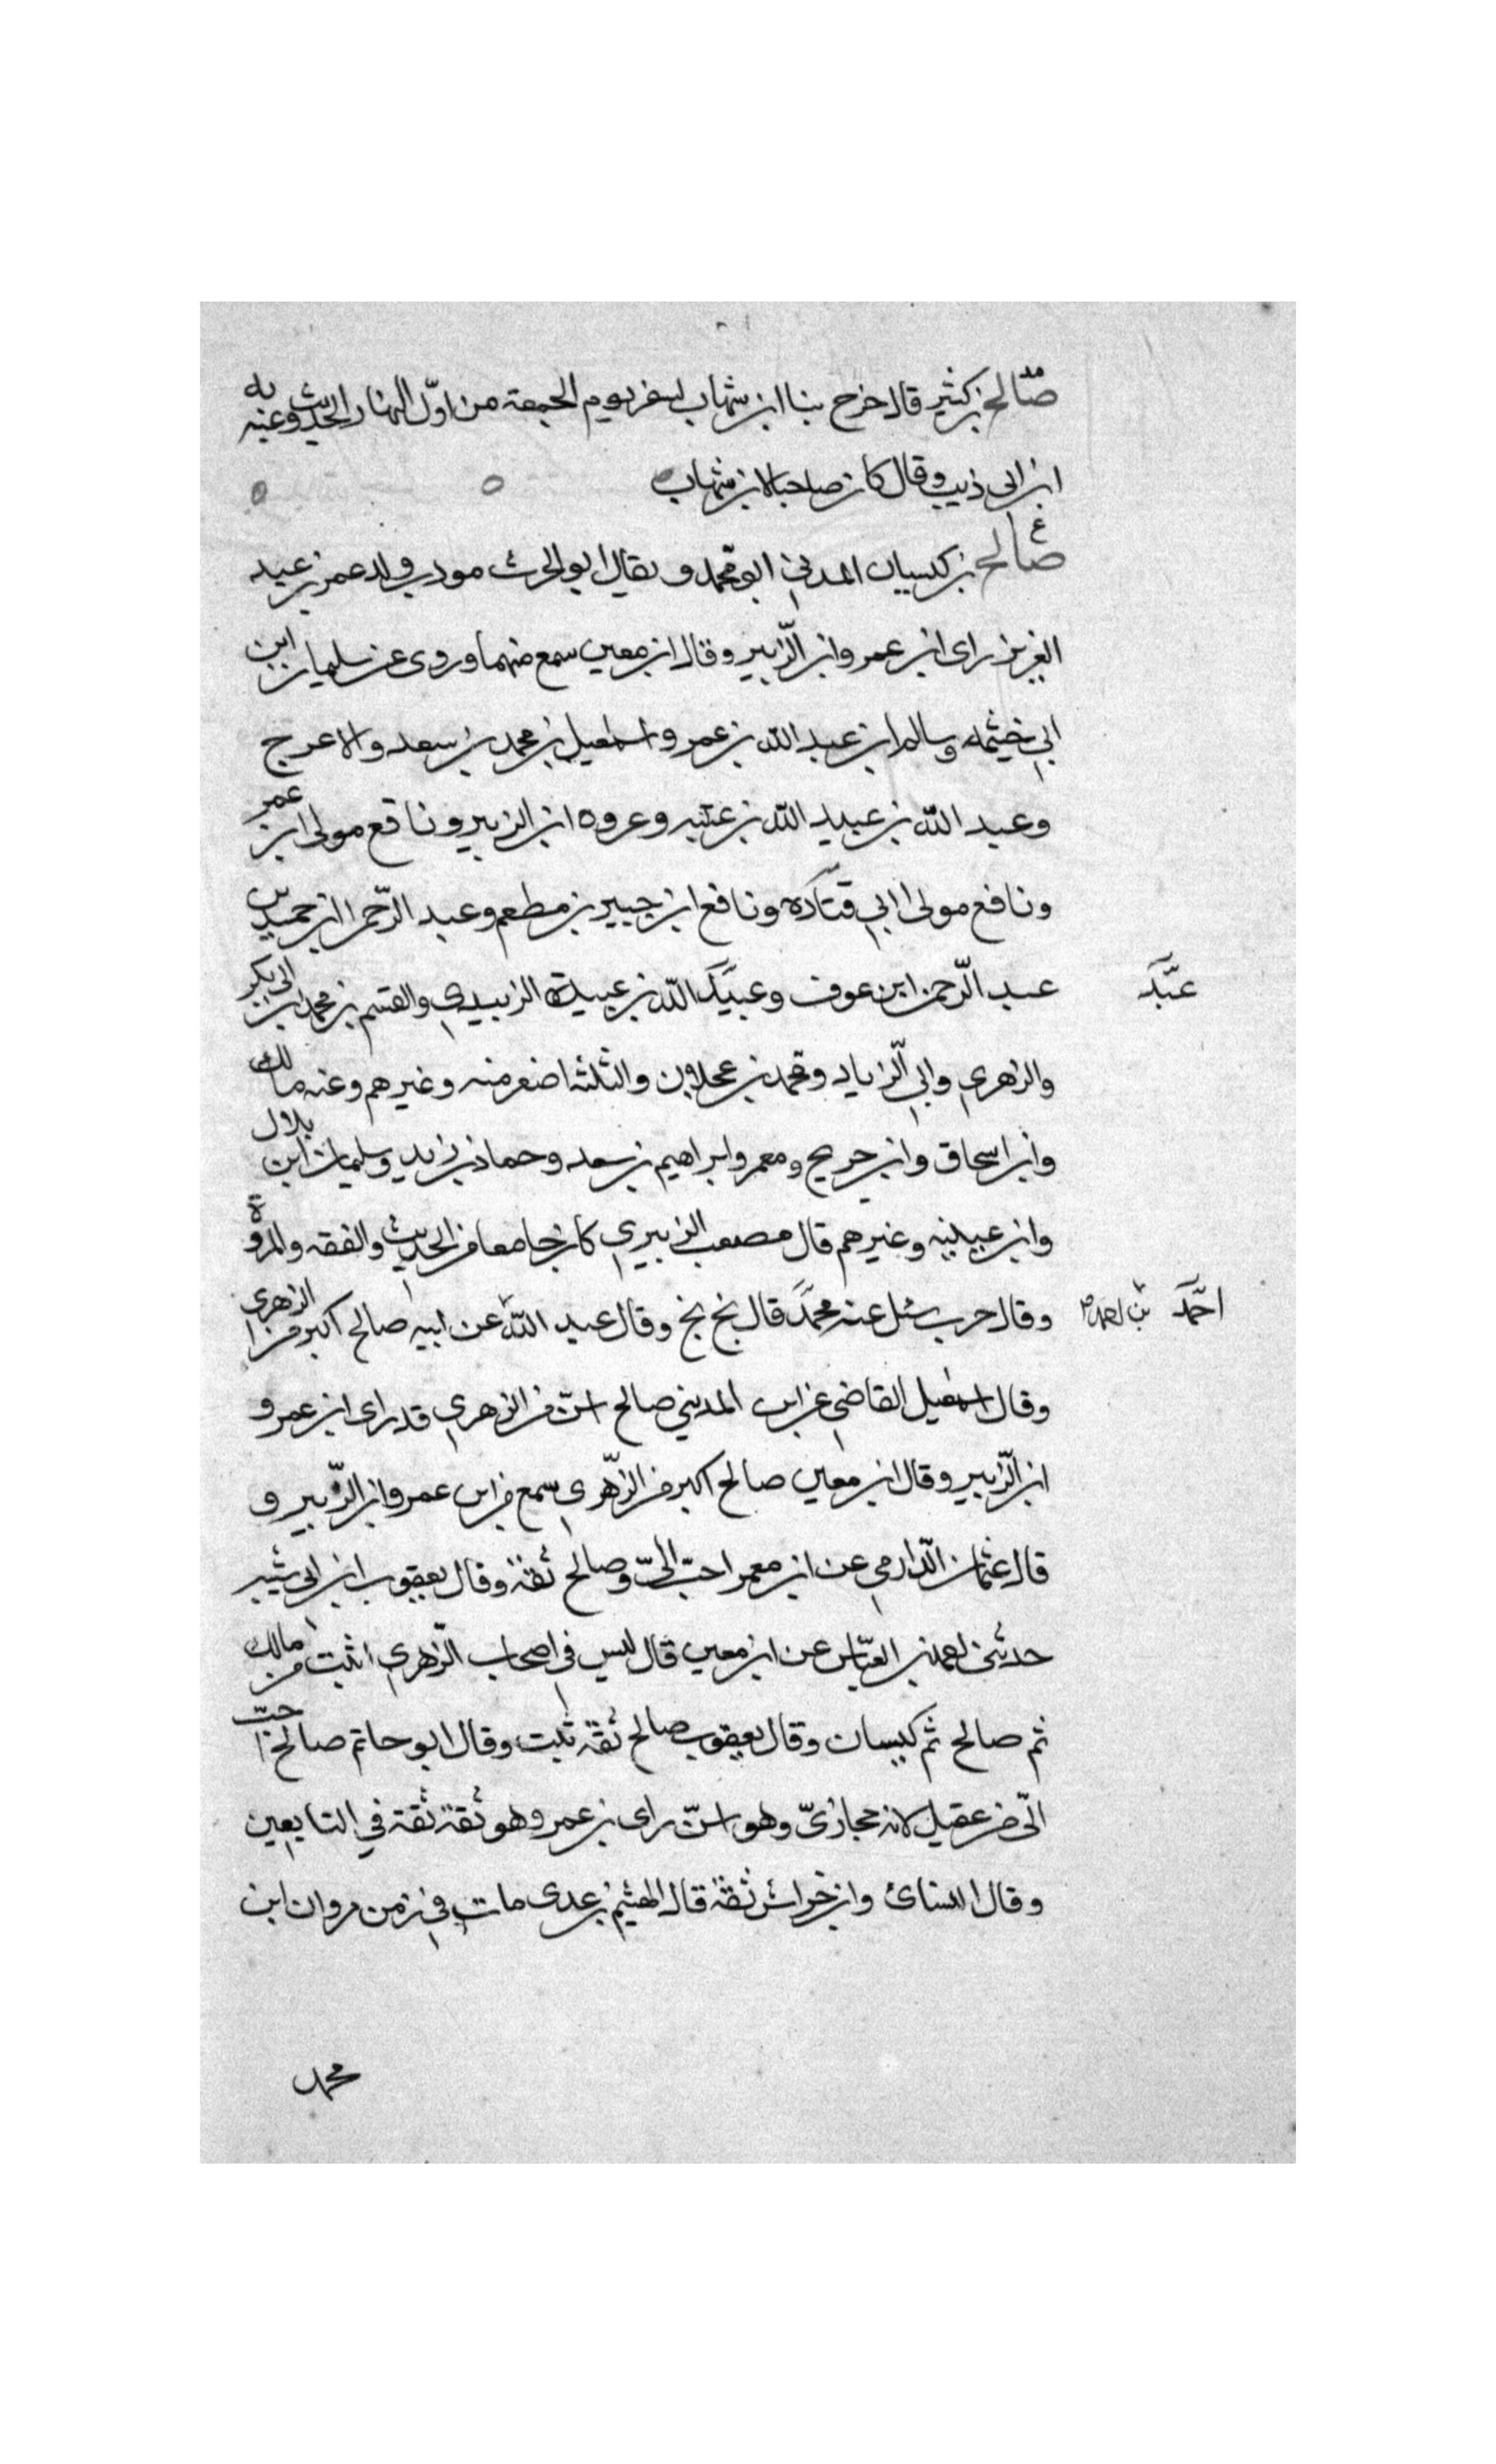 مد
صالح بن كثير قال خرج بنا ابن شهاب لسفر يوم الجمعة من اول النهار الحديث وعنه به
ابن ابى ذيب وقال كان صاحبا لابن شهاب
ع
صالح بن كيسان المدني ابو محمد و يقال ابو الحرث مودب ولد عمر بن عبد
العزيز راى ابن عمر وابن الزبير وقال ابن معين سمع منهما وروى عن سليمان ابن
ابي خثيمه وسالم ابن عبد الله بن عمر واسمعيل بن محمد بن سعد والاعرج
وعبد الله بن عبيد الله بن عتبه وعروه ابن الزبير ونافع مولى ابن عمر
ونافع مولى ابي قتاده ونافع ابن جبير بن مطعم وعبد الرحمن ابن حميد بن
عبد الرحمن ابن عوف وعبيد الله بن عبيدة الزبيدي والقسم بن محمد بن ابى بكر
عبد
والزهري وابي الزناد ومحمد بن عجلان والثلثه اصغر منه وغيرهم وعنه مالك
وابن اسحاق وابن جريج ومعمر وابراهيم بن سعد وحماد بن زيد وسليمان ابن بلال
وابن عيينه وغيرهم قال مصعب الزبيري كان جامعا من الحديث والفقه والمروة
وقال حرب سئل عنه محمد قال بخ بخ وقال عبد الله عن ابيه صالح اكبر من الزهري
احمد بن احمد
وقال اسمعيل القاضي عن ابن المديني صالح اسن من الزهري قد راى ابن عمر و
ابن الزبير وقال ابن معين صالح اكبر من الزهري سمع من ابن عمر وابن الزبير و
قال عثمان الدارمي عن ابن معمر احب الي وصالح ثقة وقال يعقوب ابن ابى شيبه
حدثنى احمد بن العباس عن ابن معين قال ليس في اصحاب الزهري اثبت من مالك
ثم صالح ثم كيسان وقال يعقوب صالح ثقة ثبت وقال ابو حاتم صالح احب
الي من عقيل لانه حجازي وهو اسن راى بن عمر وهو ثقة ثقة في التابعين
وقال النسائ وابن خراش ثقة قال الهيثم بن عدى مات في زمن مروان ابن
محمد